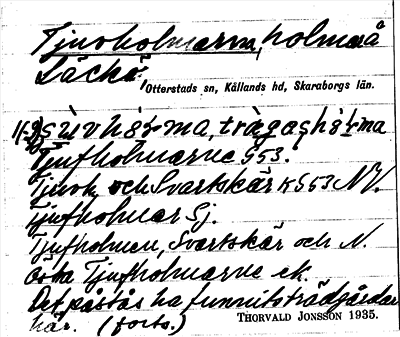 Tjuvholmarna, holmar å
Läckö,
Otterstads sn, Kållands hd, Skaraborgs län.
Tjufholmarne G53.
Tjuvh. och Svartskär KG53 NV.
Tjufholmar Sj.
Tjufholmen, Svartskär och N.
östa Tjufholmarne ek.
Det påstås ha funnits trädgårdar
här. (forts.)
THORVALD JONSSON 1935.